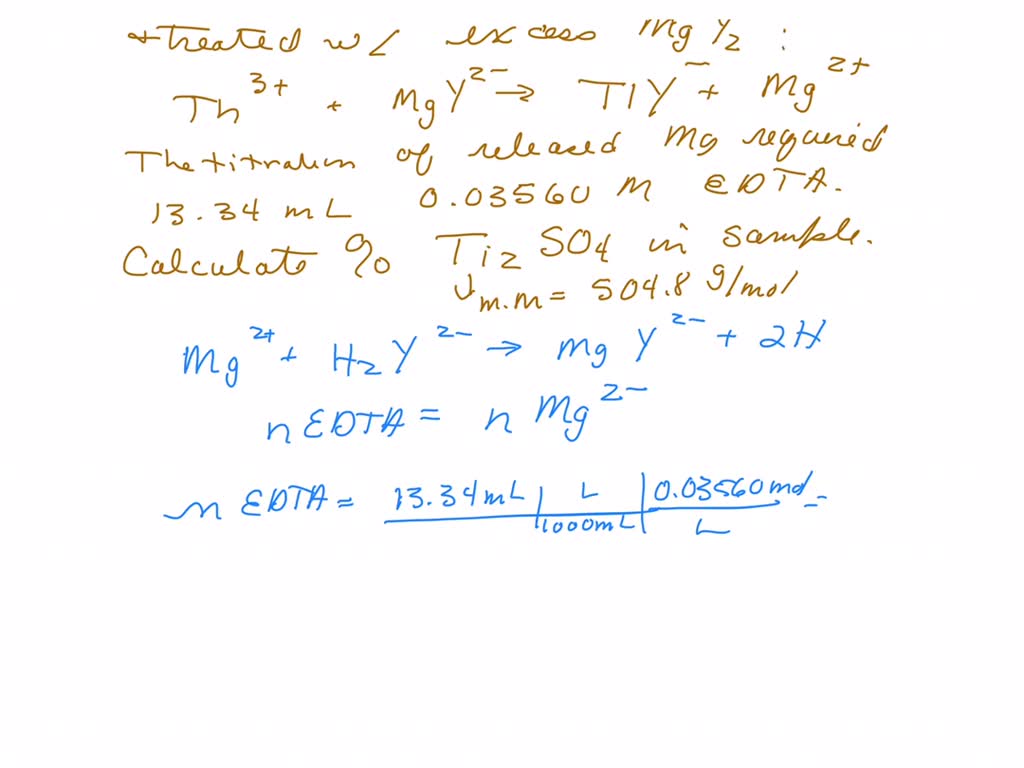 +treated w/ excess MgY2 :
Th3+ + MgY2- → TlY- + Mg2+
The titration of released Mg required
13.34 mL 0.03560 M EDTA.
Calculate % Ti2SO4 in sample.
↓ m.m = 504.8 g/mol
Mg2+ + H2Y2- → MgY2- + 2H
n EDTA = n Mg2-
n EDTA = 13.34 mL | L | 0.03560 mol =
1000 mL | L